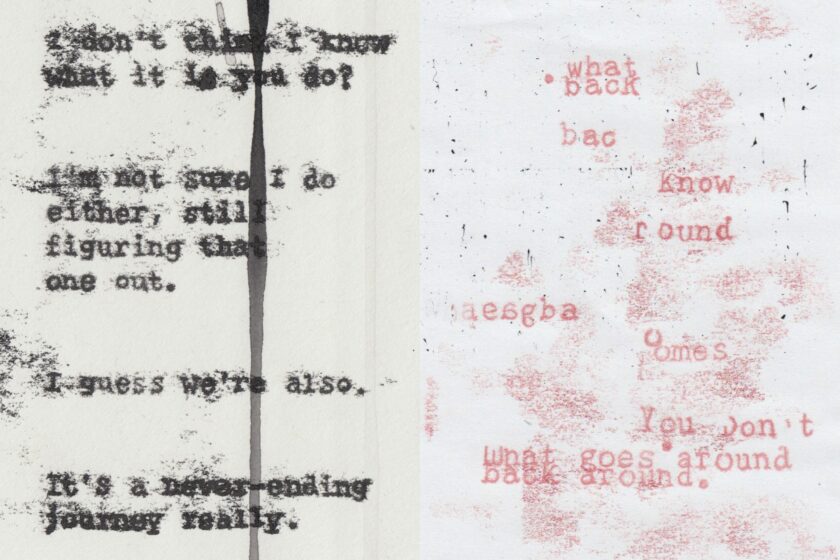 I don't think I know
what it is you do?
I'm not sure I do
either, still
figuring that
one out.
I guess we're also.
It's a never-ending
journey really.
what
back
bac
know
round
aesgba
omes
You Don't
What goes around
back around.